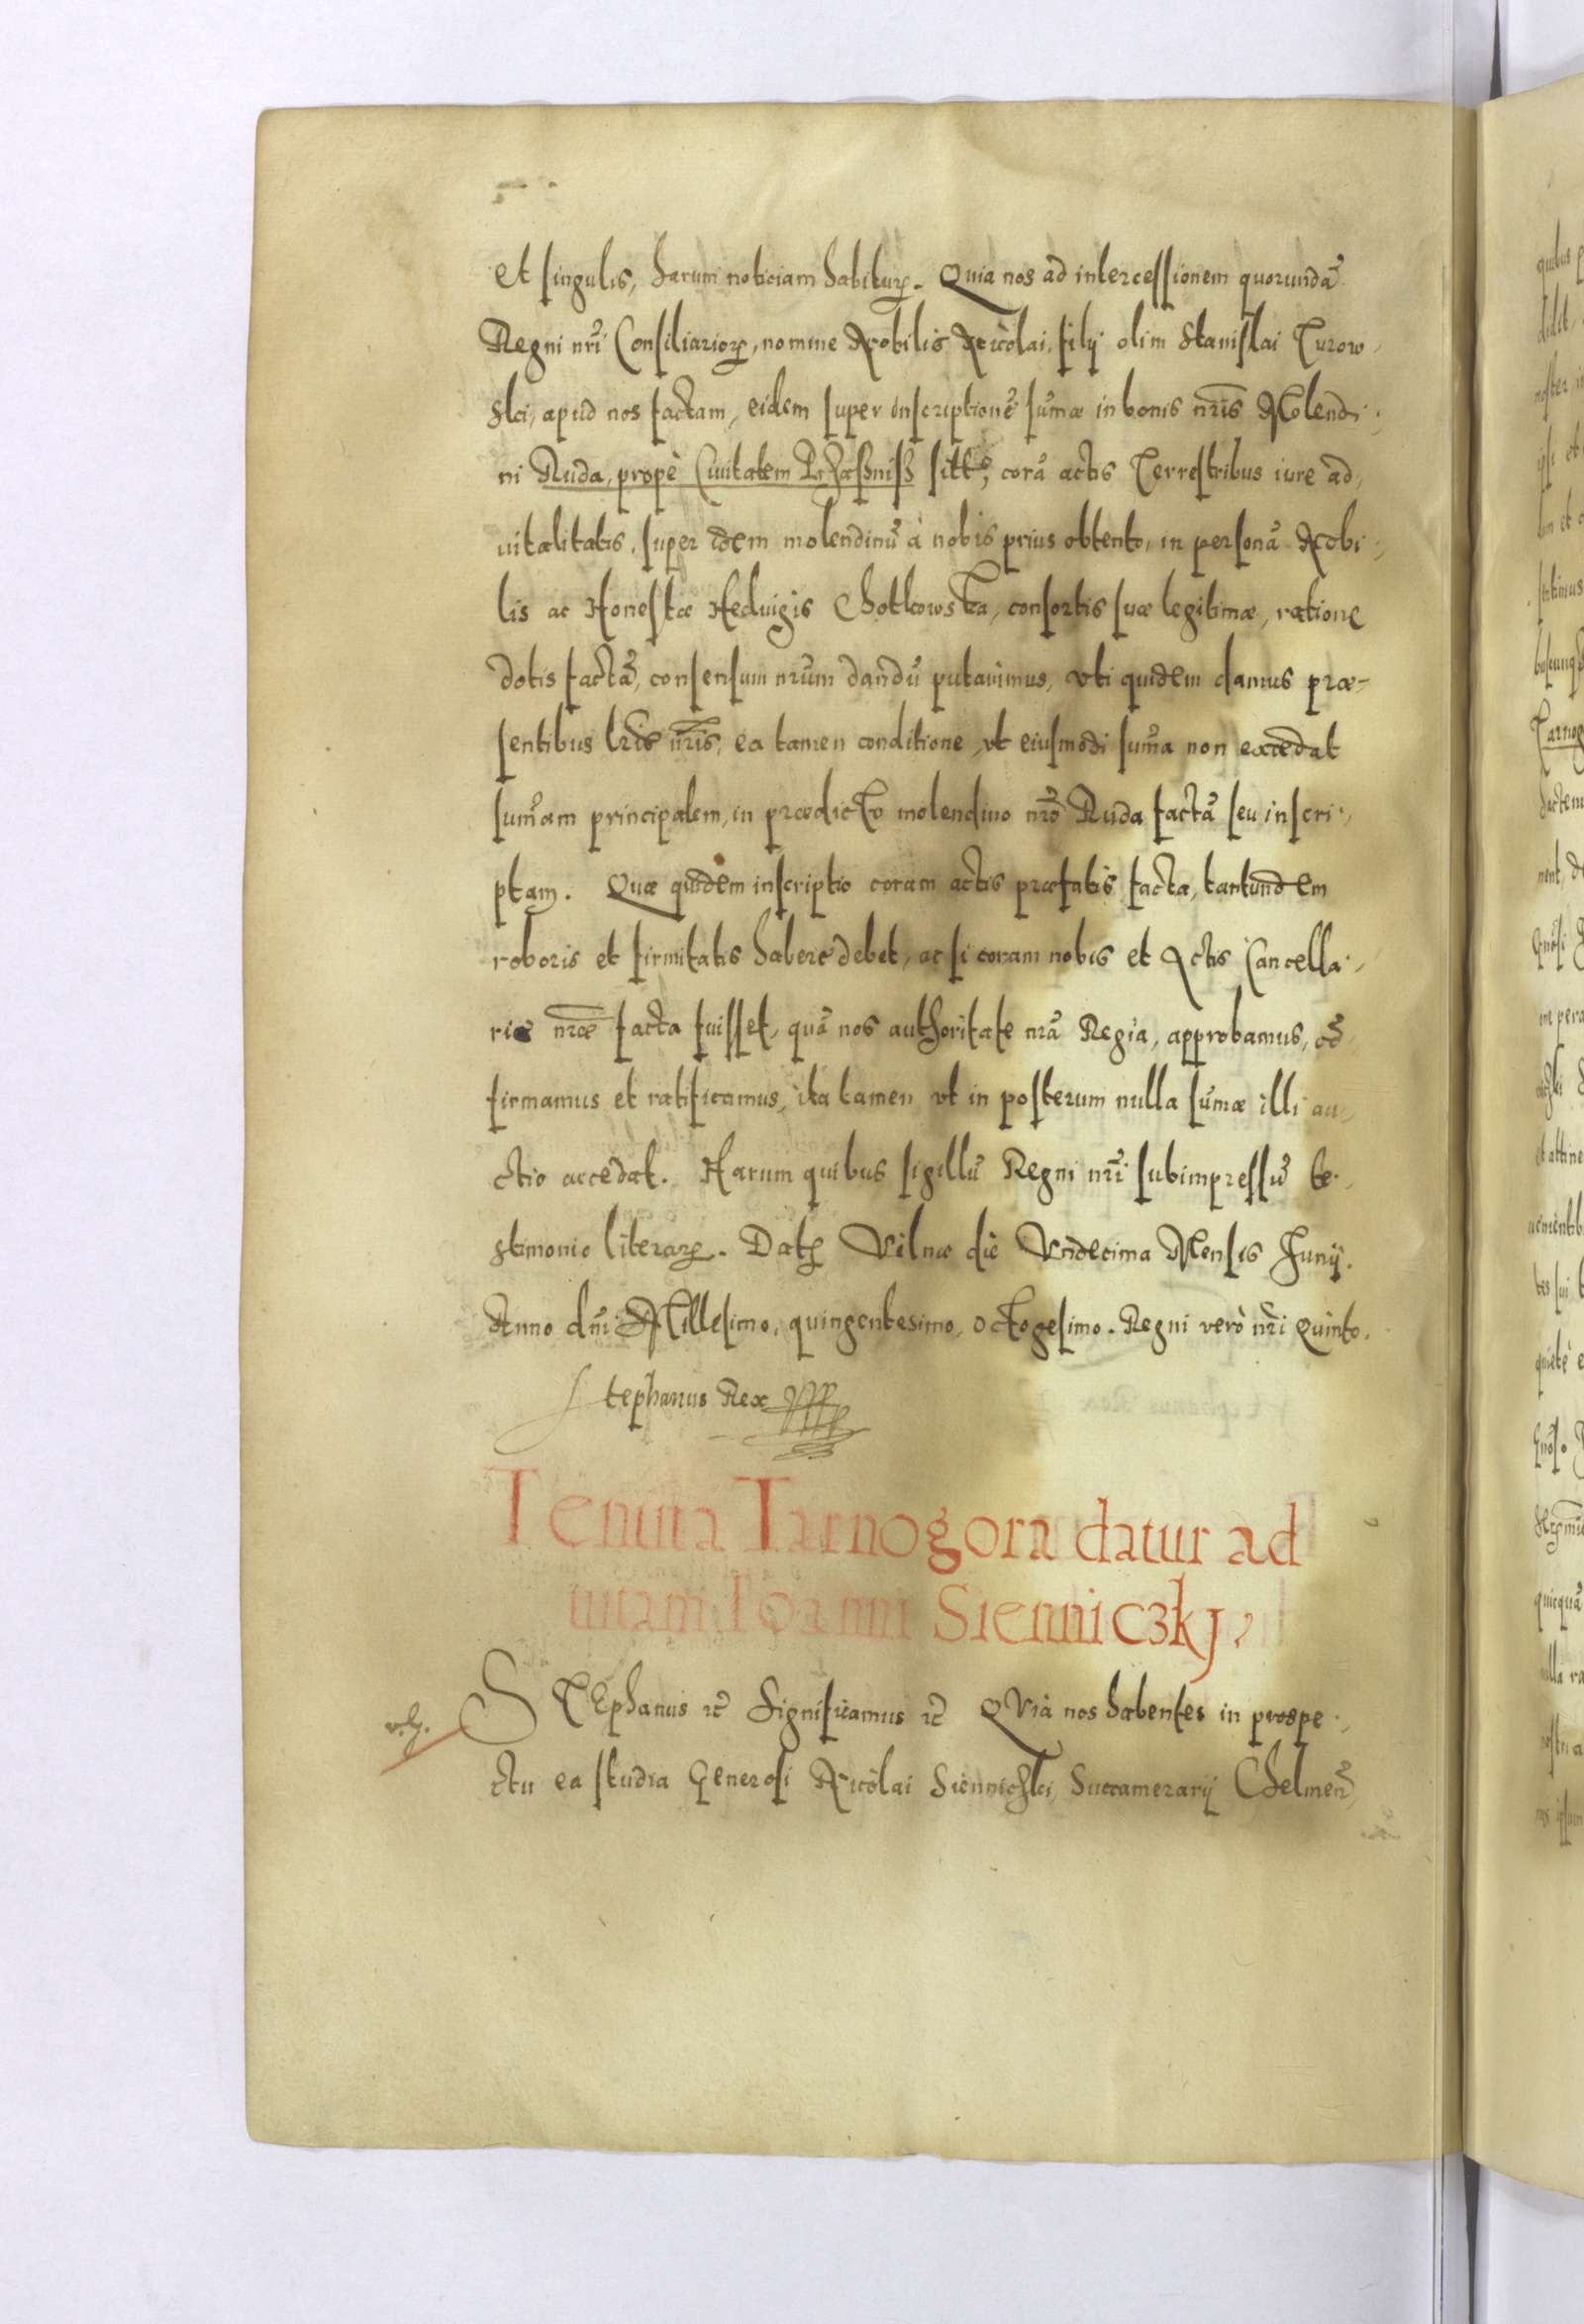 et singulis, harum noticiam habituꝝ. Quia nos ad intercessionem quorundā
Regni nr̃i Consiliarioꝝ, nomine Nobilis Nicolai, filij olim Stanislai Turow-
ski, apud nos factam, eidem super inscriptionē sum̃æ in bonis nr̃is Molendi-
ni Ruda, propè Ciuitatem sitæ, corā actis Terrestribus iure ad-
uitalitatis, super idem molendinū à nobis prius obtento, in personā Nobi-
lis ac Honestæ Heduigis Chotkowska, consortis suæ legitimæ, ratione
dotis factā, consensum nr̃um dandū putauimus, vti quidem damus præ-
sentibus lr̃is nr̃is, ea tamen conditione, vt eiusmodi sum̃a non excedat
sum̃am principalem, in prædicto molendino nr̃o Ruda factā seu inscri-
ptam. Quæ quidem inscriptio coram actis præfatis facta, tantundem
roboris et firmitatis habere debet, ac si coram nobis et Actis Cancella-
riæ nr̃æ facta fuisset, quā nos authoritate nr̃ā Regia, approbamus, cō-
firmamus et ratificamus, ita tamen vt in posterum nulla sum̃æ illi au-
ctio accedat. Harum quibus sigillū Regni nr̃i subimpressū te-
stimonio literaꝝ. Datꝝ Vilnæ die Vndecima Mensis Junij.
Anno dni Millesimo, quingentesimo, octogesimo. Regni verò nr̃i Quinto.
Stephanus Rex
Tenuta Tarnogora datur ad
uitam Ioanni Sienniczkj
STEphanus ꝛc̄ Significamus ꝛc̄ QVia nos habentes in prospe-
ctu ea studia Generosi Nicolai Siennichki, Succamerarij Chelmen̄